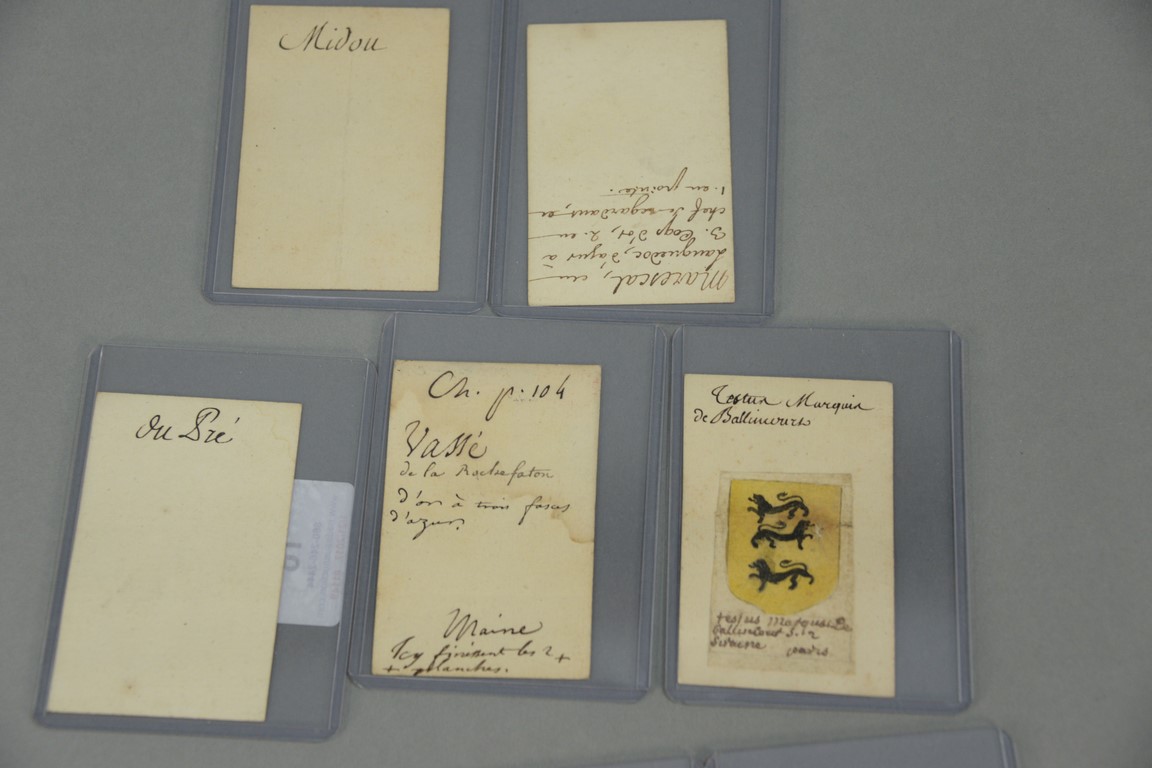 Midou
Marescal, en
Languedoc, d'azur à
3. Coqs d'or, 2. en
chef se regardans, et
1. en pointe.
du Pré
Ch. p. 104
Vassé
de la Rochefaton
d'or à trois fasces
d'azur.
Maine
Icy finissent les 2
planches.
Testus Marquis
de Ballincourt
testus Marquis de
Ballincourt
paris